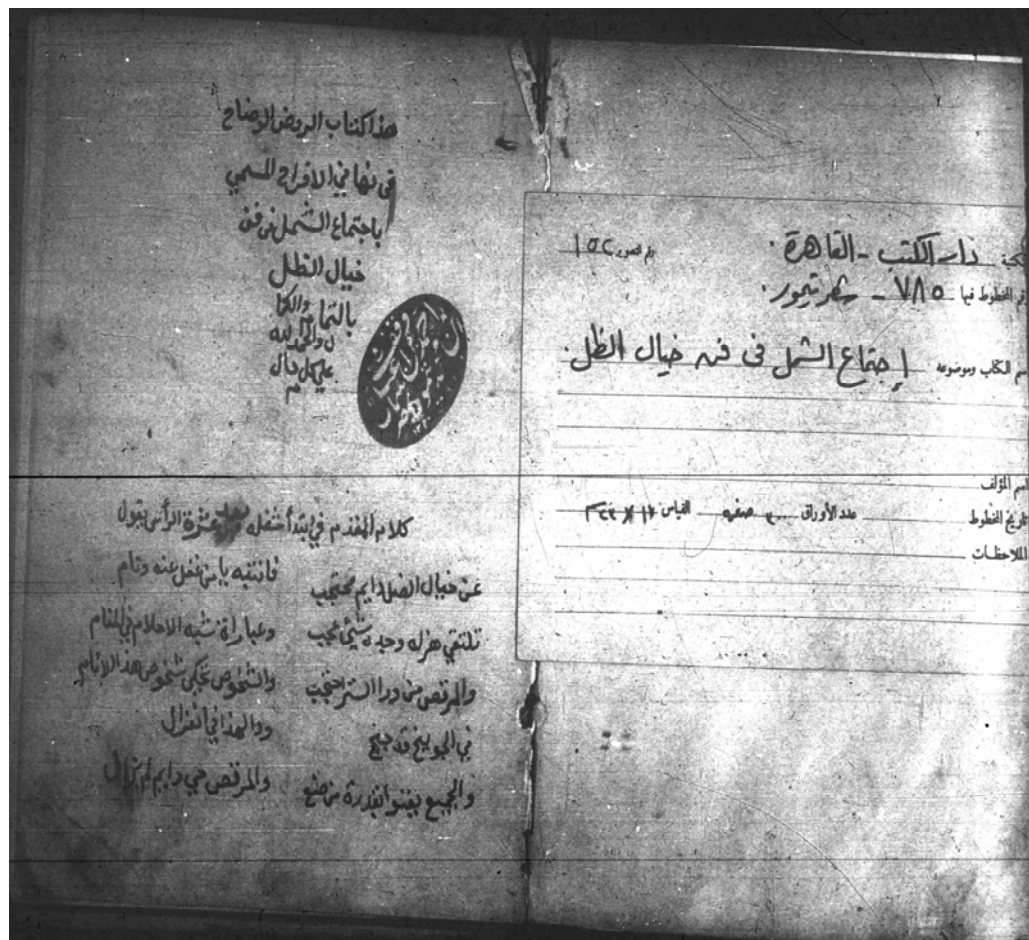 المكتبة دار الكتب - القاهرة . رقم الصورة ١٥٢
رقم المخطوط فيها ٧٨٥ - شعر تيمور .
اسم الكتاب وموضوعه إجتماع الشمل فى فن خيال الظل .
اسم المؤلف
تاريخ المخطوط عدد الأوراق صفحة القياس
الملاحظات
هذا كتاب الروض الوضاح
فى تهاني الافراح المسمي
باجتماع الشمل في فن
خيال الظل
بالتمام والكما
ل والحمد لله
علي كل حال
م
كلام المقدم في ابتدأ شغله الرأس يقول
عن خيال الضل دايم محتجب فانتبه يا من غفل عنه ونام
تلتقي هزله وجده شيئ عجب وعباراة تشبه الاحلام في المنام
والمرقص من ورا الستر احتجب والشخوص تحكي شخوص هذا الانام
في الجو
والجميع يفنوا بقدرة من صنع والمرقص حي دايم لم يزال